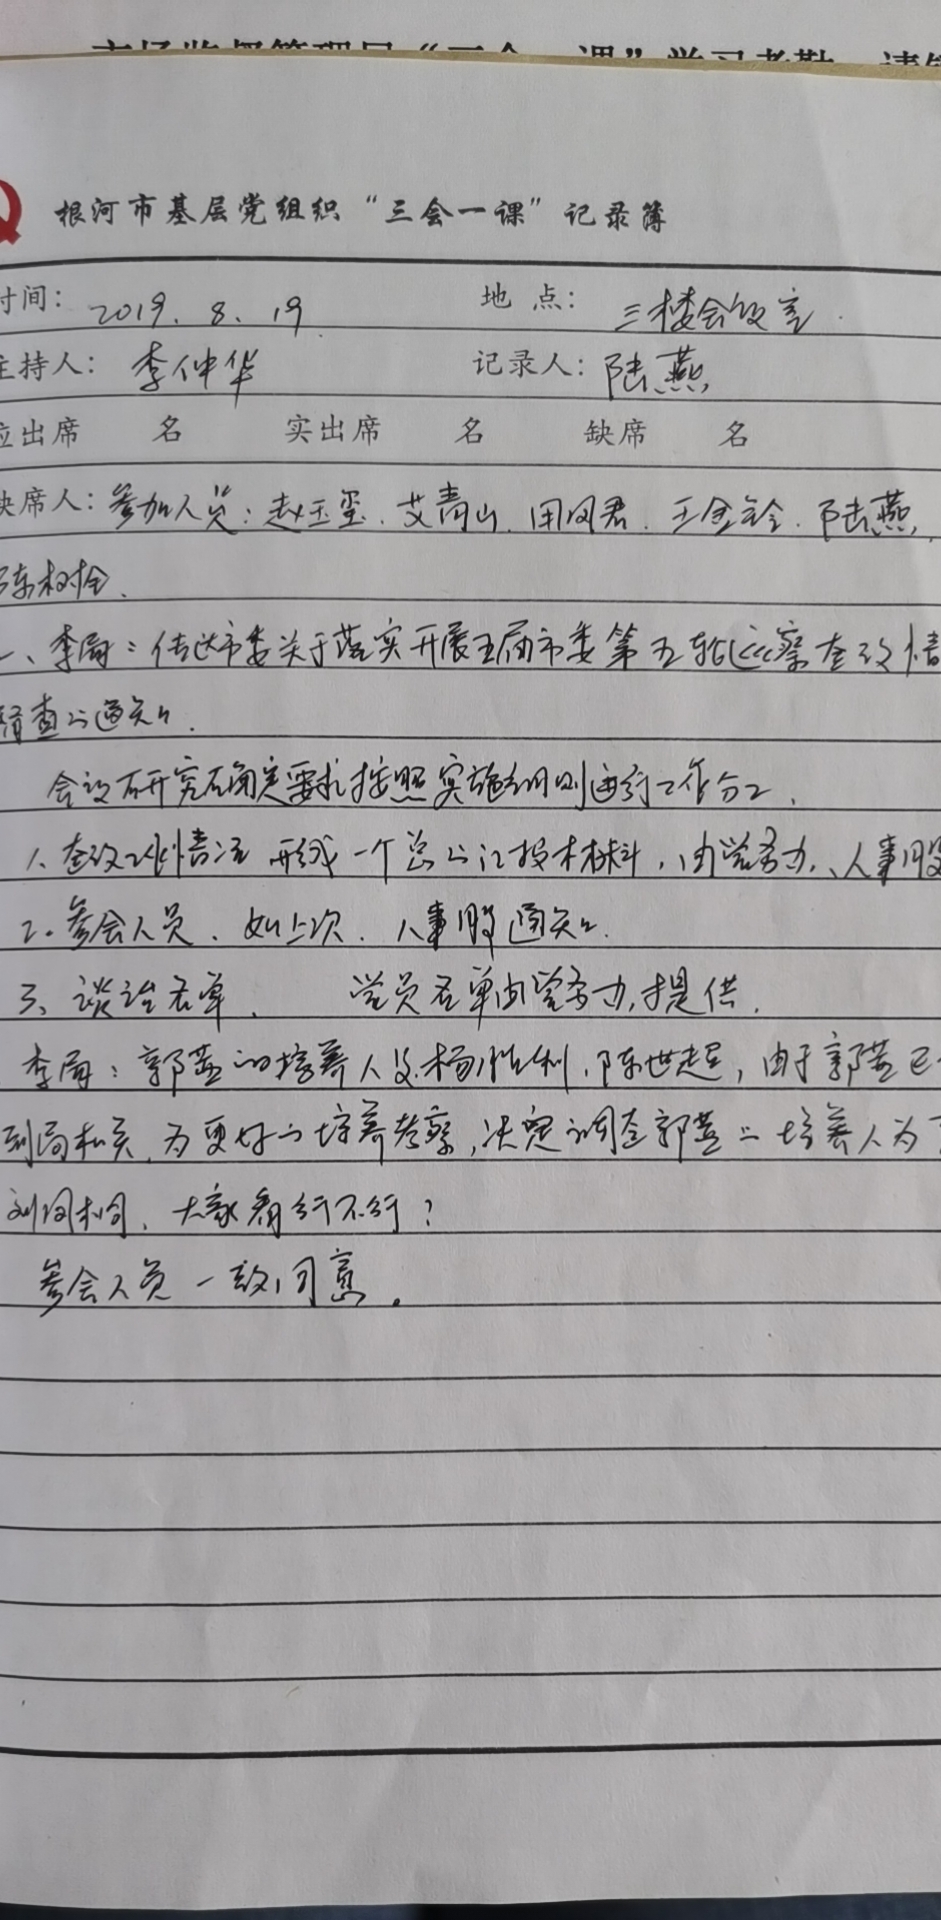 根河市基层党组织“三会一课”记录簿
时间: 2019.8.19 地 点: 三楼会议室.
主持人: 李仲华 记录人: 陆燕
应出席 名 实出席 名 缺席 名
缺席人: 参加人员: 赵玉玺. 艾青山. 田凤君. 王金铃. 陆燕,
陈树全.
一、李局: 传达市委关于落实开展五届市委第五轮巡察整改情
督查的通知.
会议研究确定要求按照实施细则进行工作分工.
1. 整改工作情况 形成一个总的汇报材料, 由党务办、人事股
2. 参会人员、如上次. 人事股通知.
三、谈话名单、 党员名单由党务办提供.
李局: 郭蕊的培养人是杨胜利, 陈世超, 由于郭蕊已
到局机关, 为更好的培养考察, 决定调整郭蕊的培养人为
大家看行不行?
参会人员一致同意.